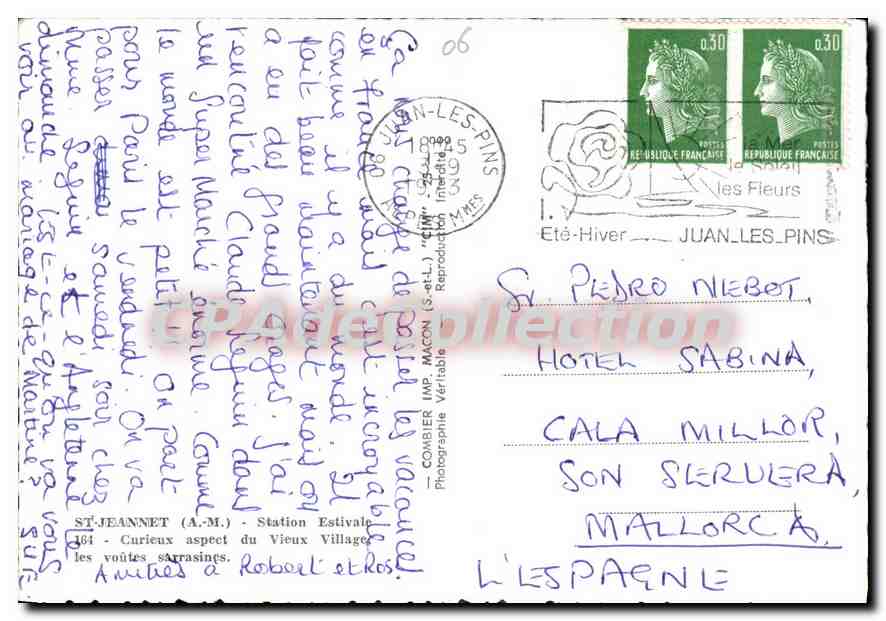 Ça nous change de passer les vacances
en France mais c'est incroyable
comme il y a du monde. Il
fait beau maintenant mais on
a eu des grands orages. J'ai
rencontré Claude Seguin dans
un Super Marché énorme. Comme
le monde est petit!! On part
pour Paris le vendredi. On va
passer samedi soir chez
Mme. Seguin et l'Angleterre le
dimanche. Est-ce-qu'on va vous
voir au mariage de Martine?
Amitiés à Robert et Ros.
ST-JEANNET (A.-M.) - Station Estivale
164 - Curieux aspect du Vieux Village
les voûtes sarrasines.
— COMBIER IMP. MACON (S.-et-L.) "CIM"
Photographie Véritable - Reproduction Interdite
06
06 JUAN-LES-PINS
18 45
ALPES MMES
0,30
POSTES
REPUBLIQUE FRANÇAISE
0,30
POSTES
REPUBLIQUE FRANÇAISE
la Mer
le Soleil
les Fleurs
Eté-Hiver JUAN_LES_PINS
Sr. PEDRO NIEBOT,
HOTEL SABINA,
CALA MILLOR,
SON SERVERA,
MALLORCA,
L'ESPAGNE
CPAdeCollection